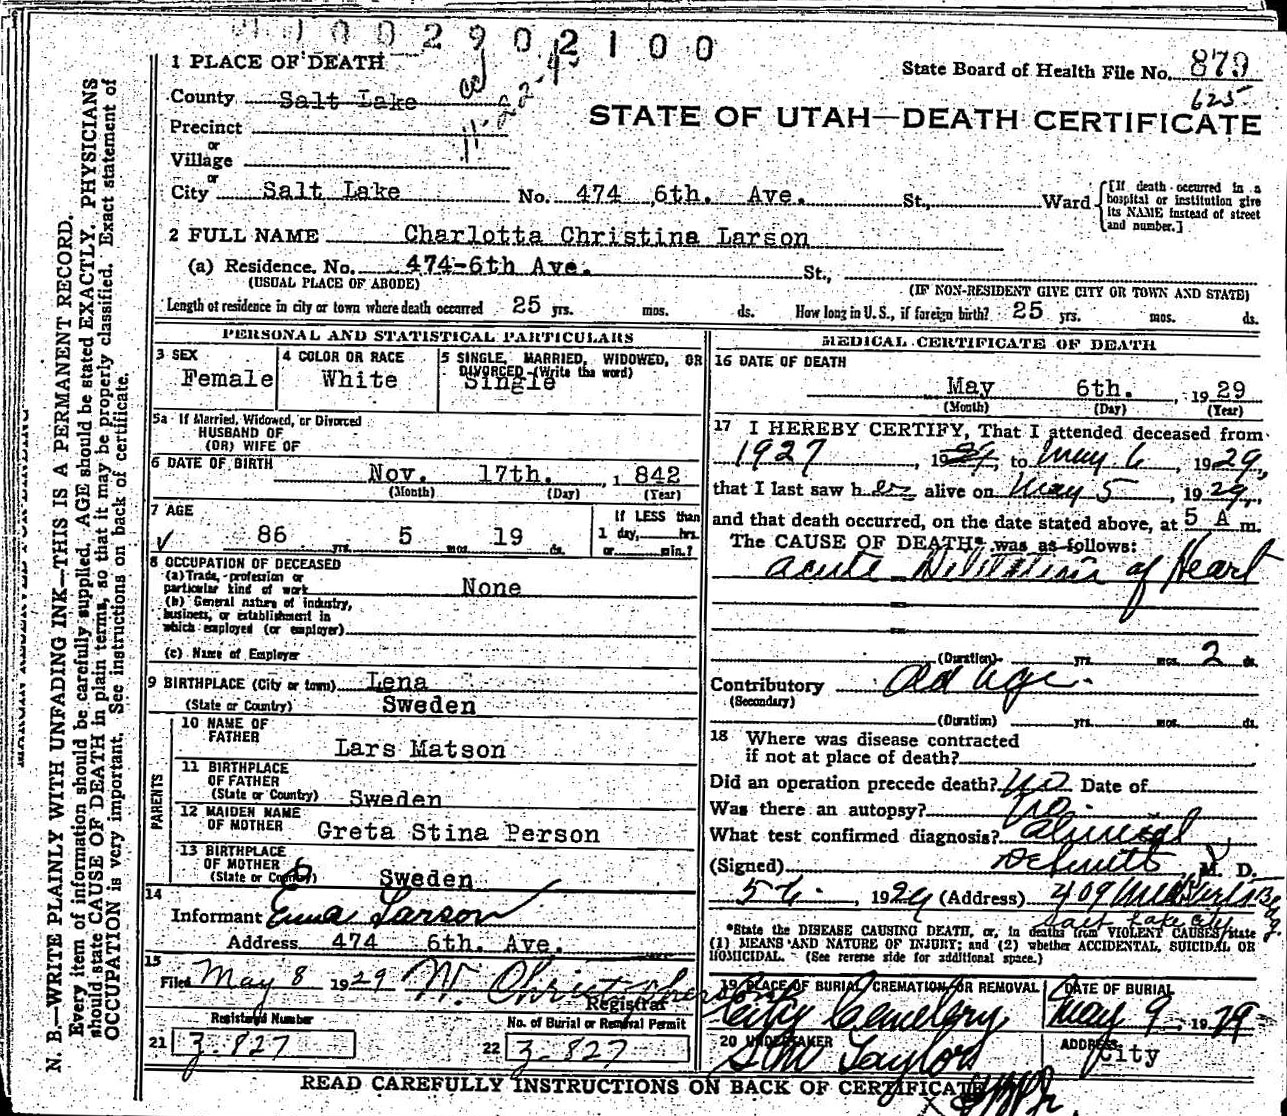 1 0 0 2 9 0 2 1 0 0
1 PLACE OF DEATH
State Board of Health File No. 879
625
County Salt Lake
STATE OF UTAH—DEATH CERTIFICATE
Precinct
or
Village
or
City Salt Lake No. 474 6th. Ave. St., Ward
[If death occurred in a hospital or institution give its NAME instead of street and number.]
2 FULL NAME Charlotta Christina Larson
(a) Residence. No. 474-6th Ave. St.,
(USUAL PLACE OF ABODE) (IF NON-RESIDENT GIVE CITY OR TOWN AND STATE)
Length of residence in city or town where death occurred 25 yrs. mos. ds. How long in U. S., if foreign birth? 25 yrs. mos. ds.
PERSONAL AND STATISTICAL PARTICULARS
3 SEX
Female
4 COLOR OR RACE
White
5 SINGLE, MARRIED, WIDOWED, OR
DIVORCED (Write the word)
Single
5a If Married, Widowed, or Divorced
HUSBAND OF
(OR) WIFE OF
6 DATE OF BIRTH
Nov. 17th. , 1 842
(Month) (Day) (Year)
7 AGE
86 yrs. 5 mos. 19 ds.
If LESS than
1 day, hrs.
or min.?
8 OCCUPATION OF DECEASED
(a) Trade, profession or
particular kind of work None
(b) General nature of industry,
business, or establishment in
which employed (or employer)
(c) Name of Employer
9 BIRTHPLACE (City or town) Lena
(State or Country) Sweden
PARENTS
10 NAME OF
FATHER
Lars Matson
11 BIRTHPLACE
OF FATHER
(State or Country) Sweden
12 MAIDEN NAME
OF MOTHER Greta Stina Person
13 BIRTHPLACE
OF MOTHER
(State or Country) Sweden
14
Informant Emma Larson
Address 474 6th. Ave.
15
Filed May 8 1929 W. Christopherson
Registrar
Registered Number
21 3-827
No. of Burial or Removal Permit
22 3-827
MEDICAL CERTIFICATE OF DEATH
16 DATE OF DEATH
May 6th. , 19 29
(Month) (Day) (Year)
17 I HEREBY CERTIFY, That I attended deceased from
1927 , 19 , to May 6 19 29,
that I last saw h er alive on May 5 , 19 29,
and that death occurred, on the date stated above, at 5 A m.
The CAUSE OF DEATH* was as follows:
acute Dilitation of Heart
(Duration) yrs. mos. 2 ds.
Contributory Old age.
(Secondary)
(Duration) yrs. mos. ds.
18 Where was disease contracted
if not at place of death?
Did an operation precede death? No Date of
Was there an autopsy? No.
What test confirmed diagnosis? Clinical
(Signed) M. D.
5-6. , 1929 (Address) 409
Salt Lake City
*State the DISEASE CAUSING DEATH, or, in deaths from VIOLENT CAUSES, state
(1) MEANS AND NATURE OF INJURY; and (2) whether ACCIDENTAL, SUICIDAL OR
HOMICIDAL. (See reverse side for additional space.)
19 PLACE OF BURIAL, CREMATION, OR REMOVAL
City Cemetery
DATE OF BURIAL
May 9 , 19 29
20 UNDERTAKER
Taylor
ADDRESS
City
READ CAREFULLY INSTRUCTIONS ON BACK OF CERTIFICATE
N. B.—WRITE PLAINLY WITH UNFADING INK—THIS IS A PERMANENT RECORD.
Every item of information should be carefully supplied. AGE should be stated EXACTLY. PHYSICIANS
should state CAUSE OF DEATH in plain terms, so that it may be properly classified. Exact statement of
OCCUPATION is very important. See instructions on back of certificate.